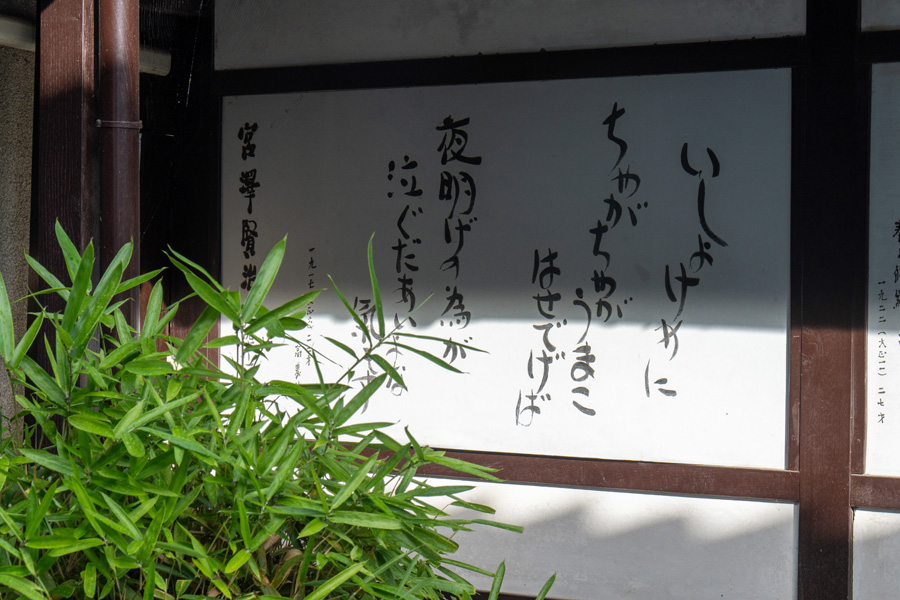 いしょけめに
ちゃがちゃが
うまこ
はせでげば
夜明げの為が
泣ぐだあいな
気
宮澤賢治
一九一七
一九二二(大正一一)二七才